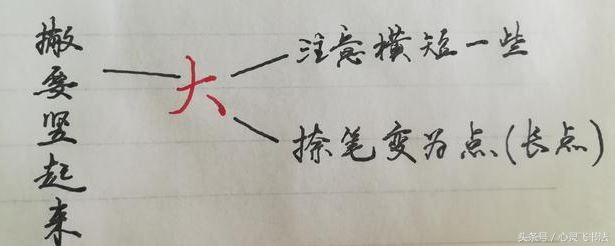 撇要竖起来
大
注意横短一些
捺笔变为点(长点)
头条号/心灵飞书法